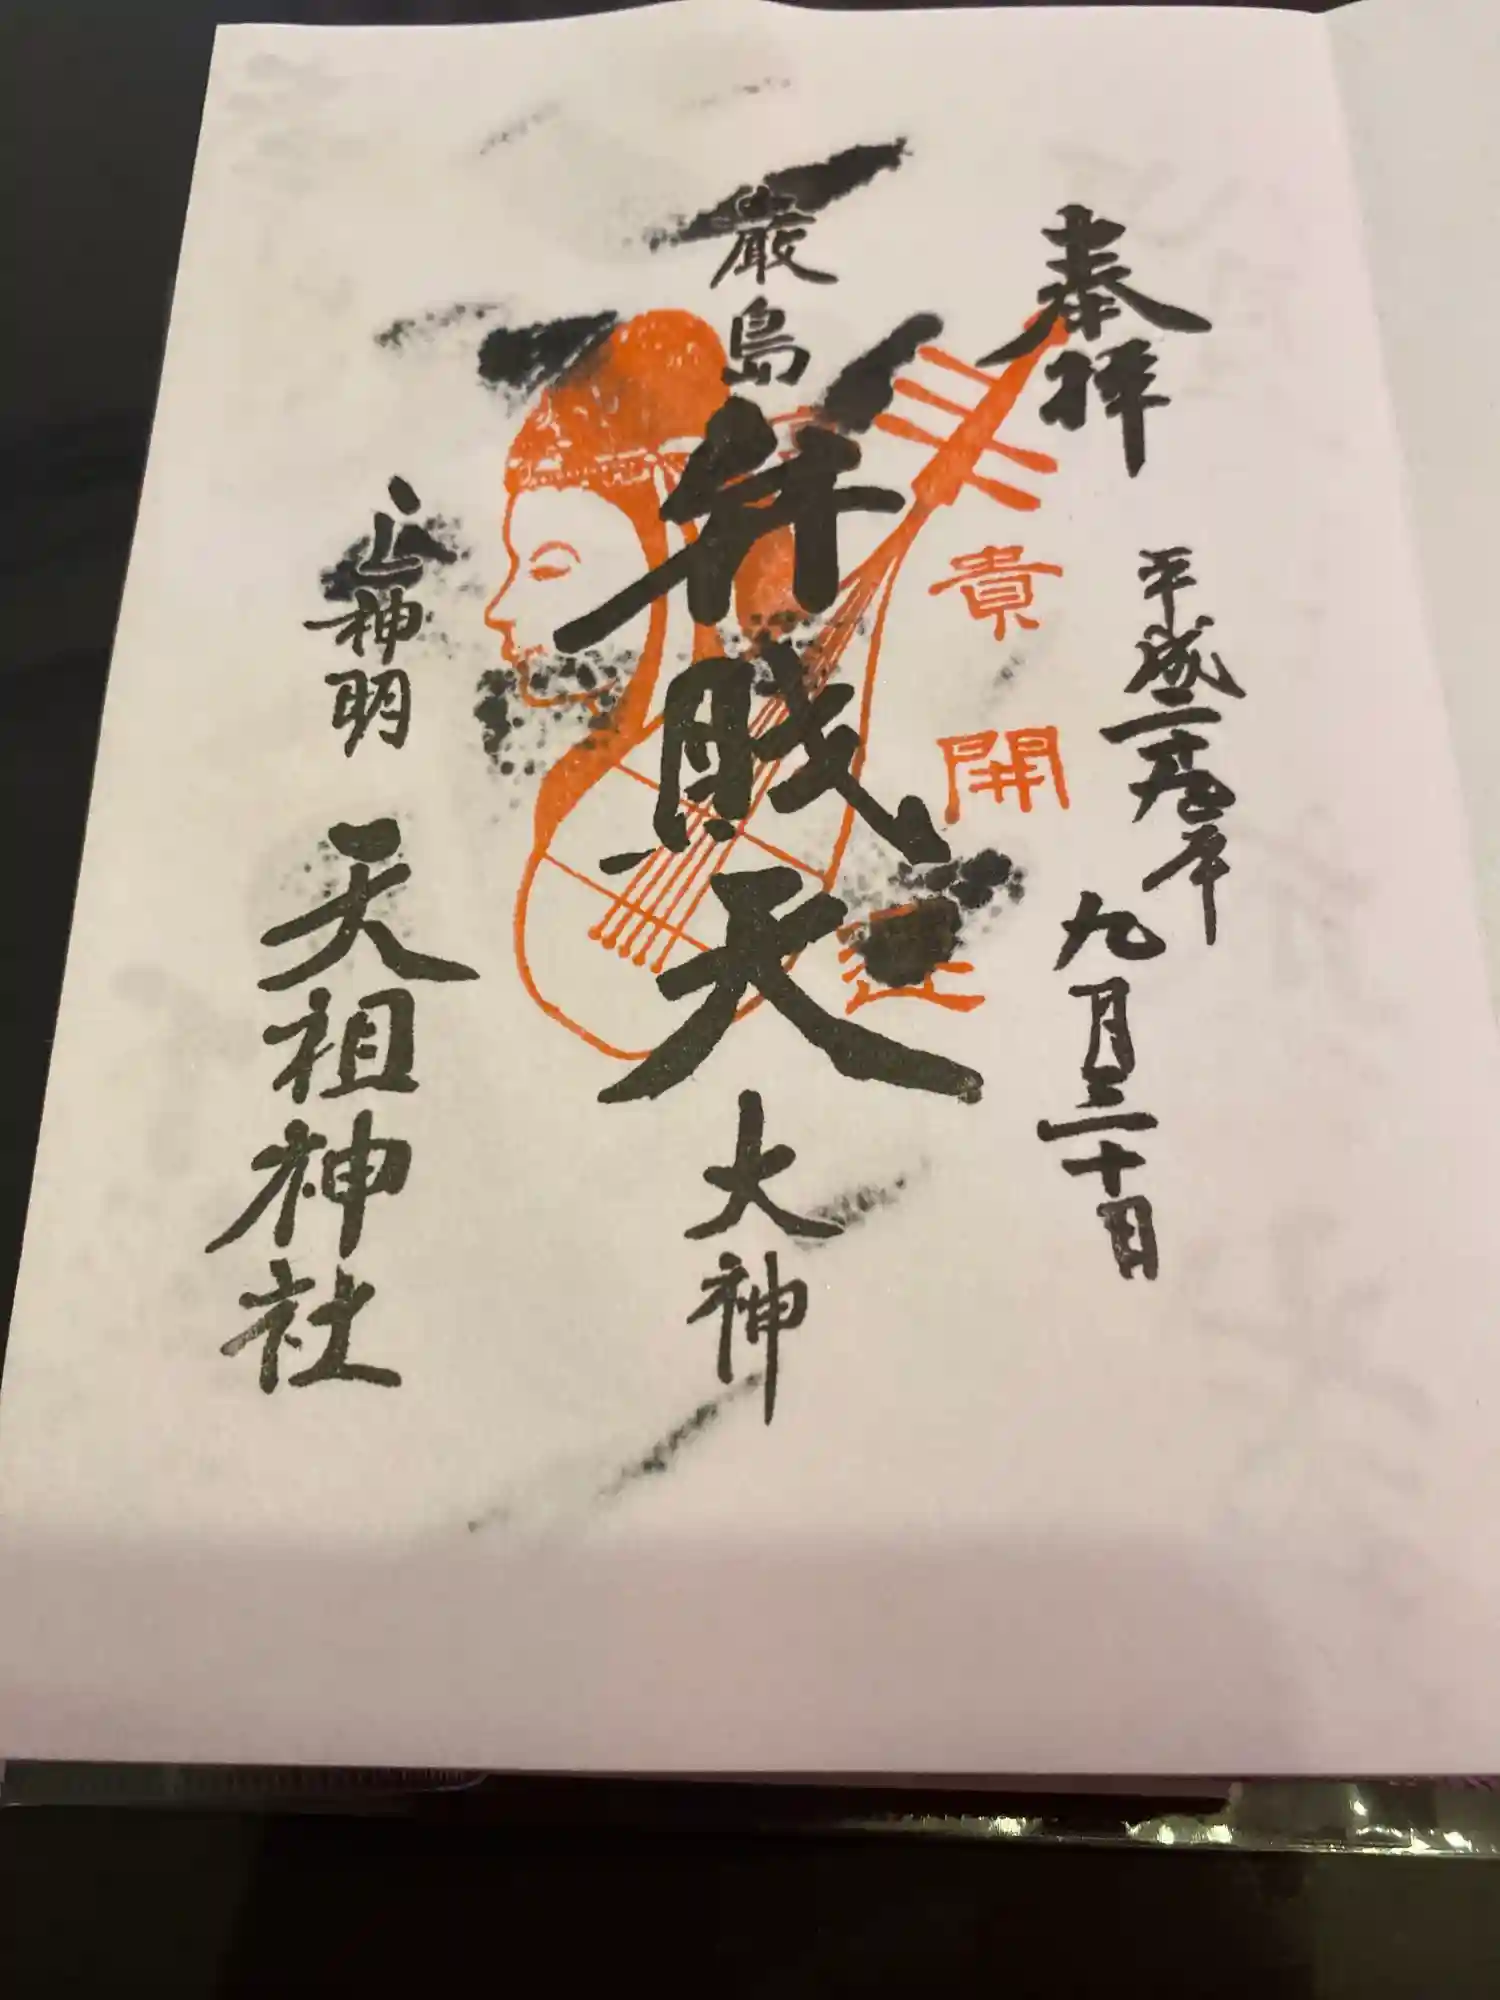 奉拝
平成二十九年
九月三十日
貴
開
運
厳島
弁財天
大神
山神明
天祖神社